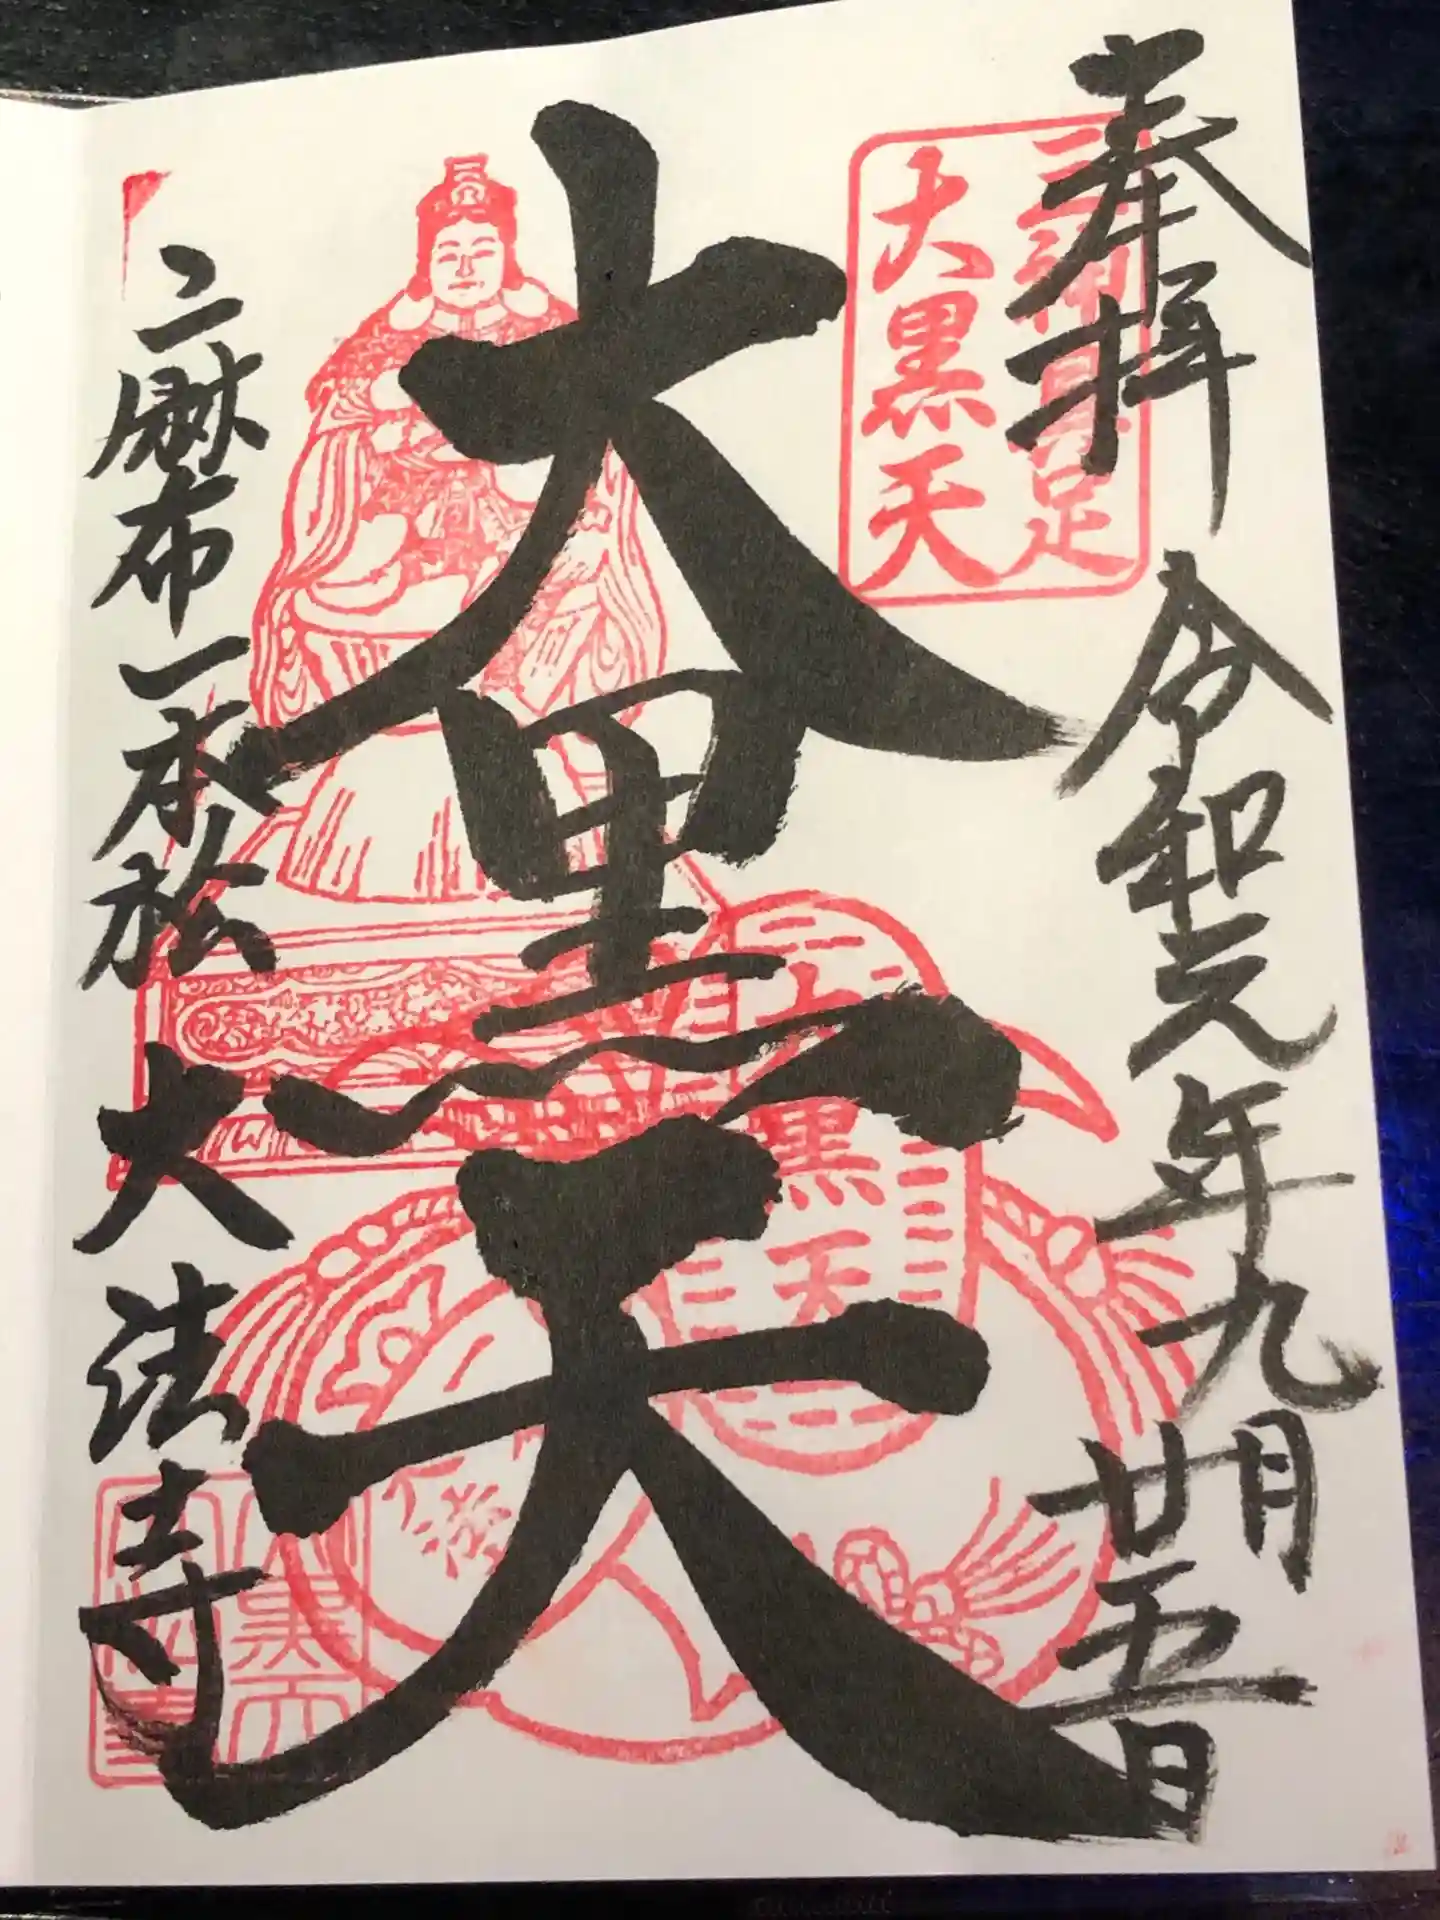 奉拝 令和元年九月廿五日
三神具足
大黒天
大黒天
麻布一本松 大法寺
大黒天